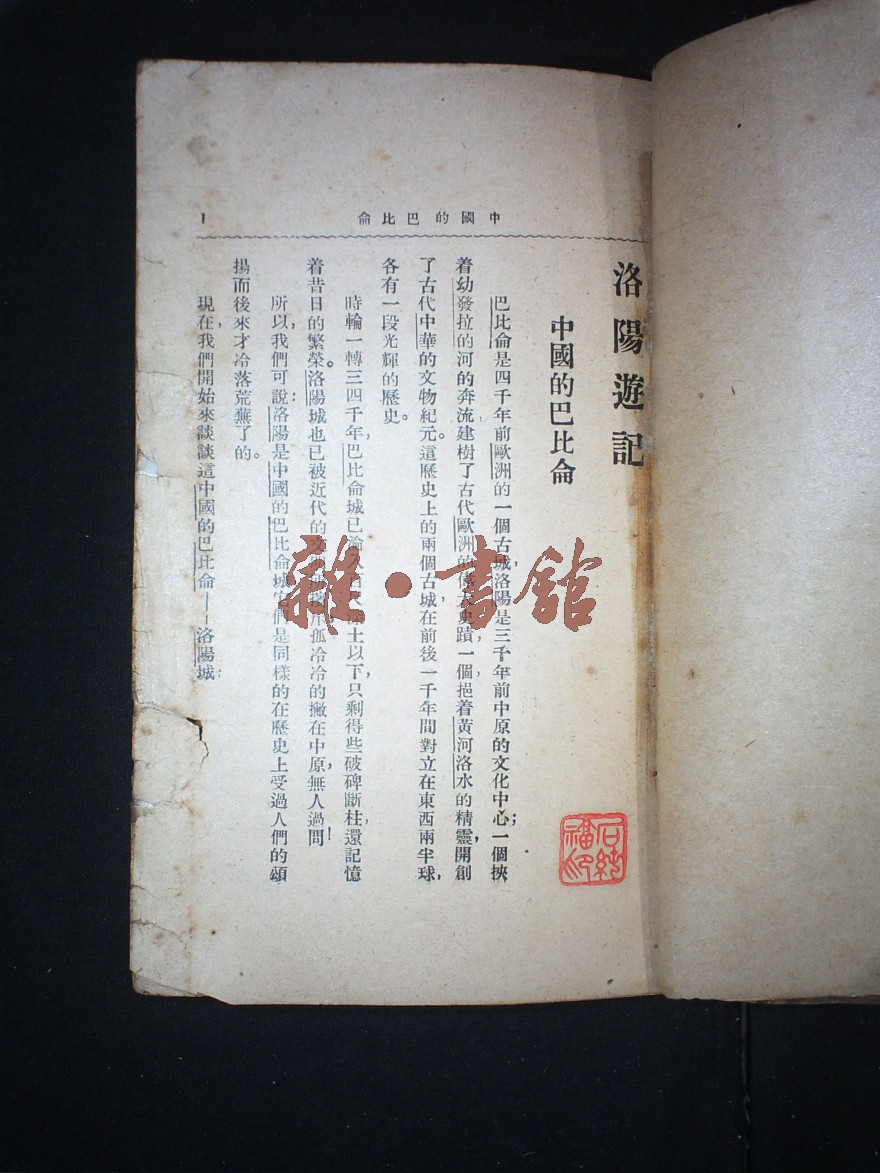 中國的巴比侖
1
洛陽遊記
中國的巴比侖
巴比侖是四千年前歐洲的一個古城,洛陽是三千年前中原的文化中心;一個挾
着幼發拉的河的奔流建樹了古代歐洲的偉大史蹟,一個挹着黃河洛水的精靈,開創
了古代中華的文物紀元。這歷史上的兩個古城,在前後一千年間對立在東西兩半球,
各有一段光輝的歷史。
時輪一轉三四千年,巴比侖城已淪土以下,只剩得些破碑斷柱,還記憶
着昔日的繁榮。洛陽城也已被近代的孤冷冷的撇在中原,無人過問!
所以,我們可說:洛陽是中國的巴比侖城,它們是同樣的在歷史上受過人們的頌
揚而後來才冷落荒蕪了的。
現在,我們開始來談談這中國的巴比侖——洛陽城:
雜·書館
石純福印